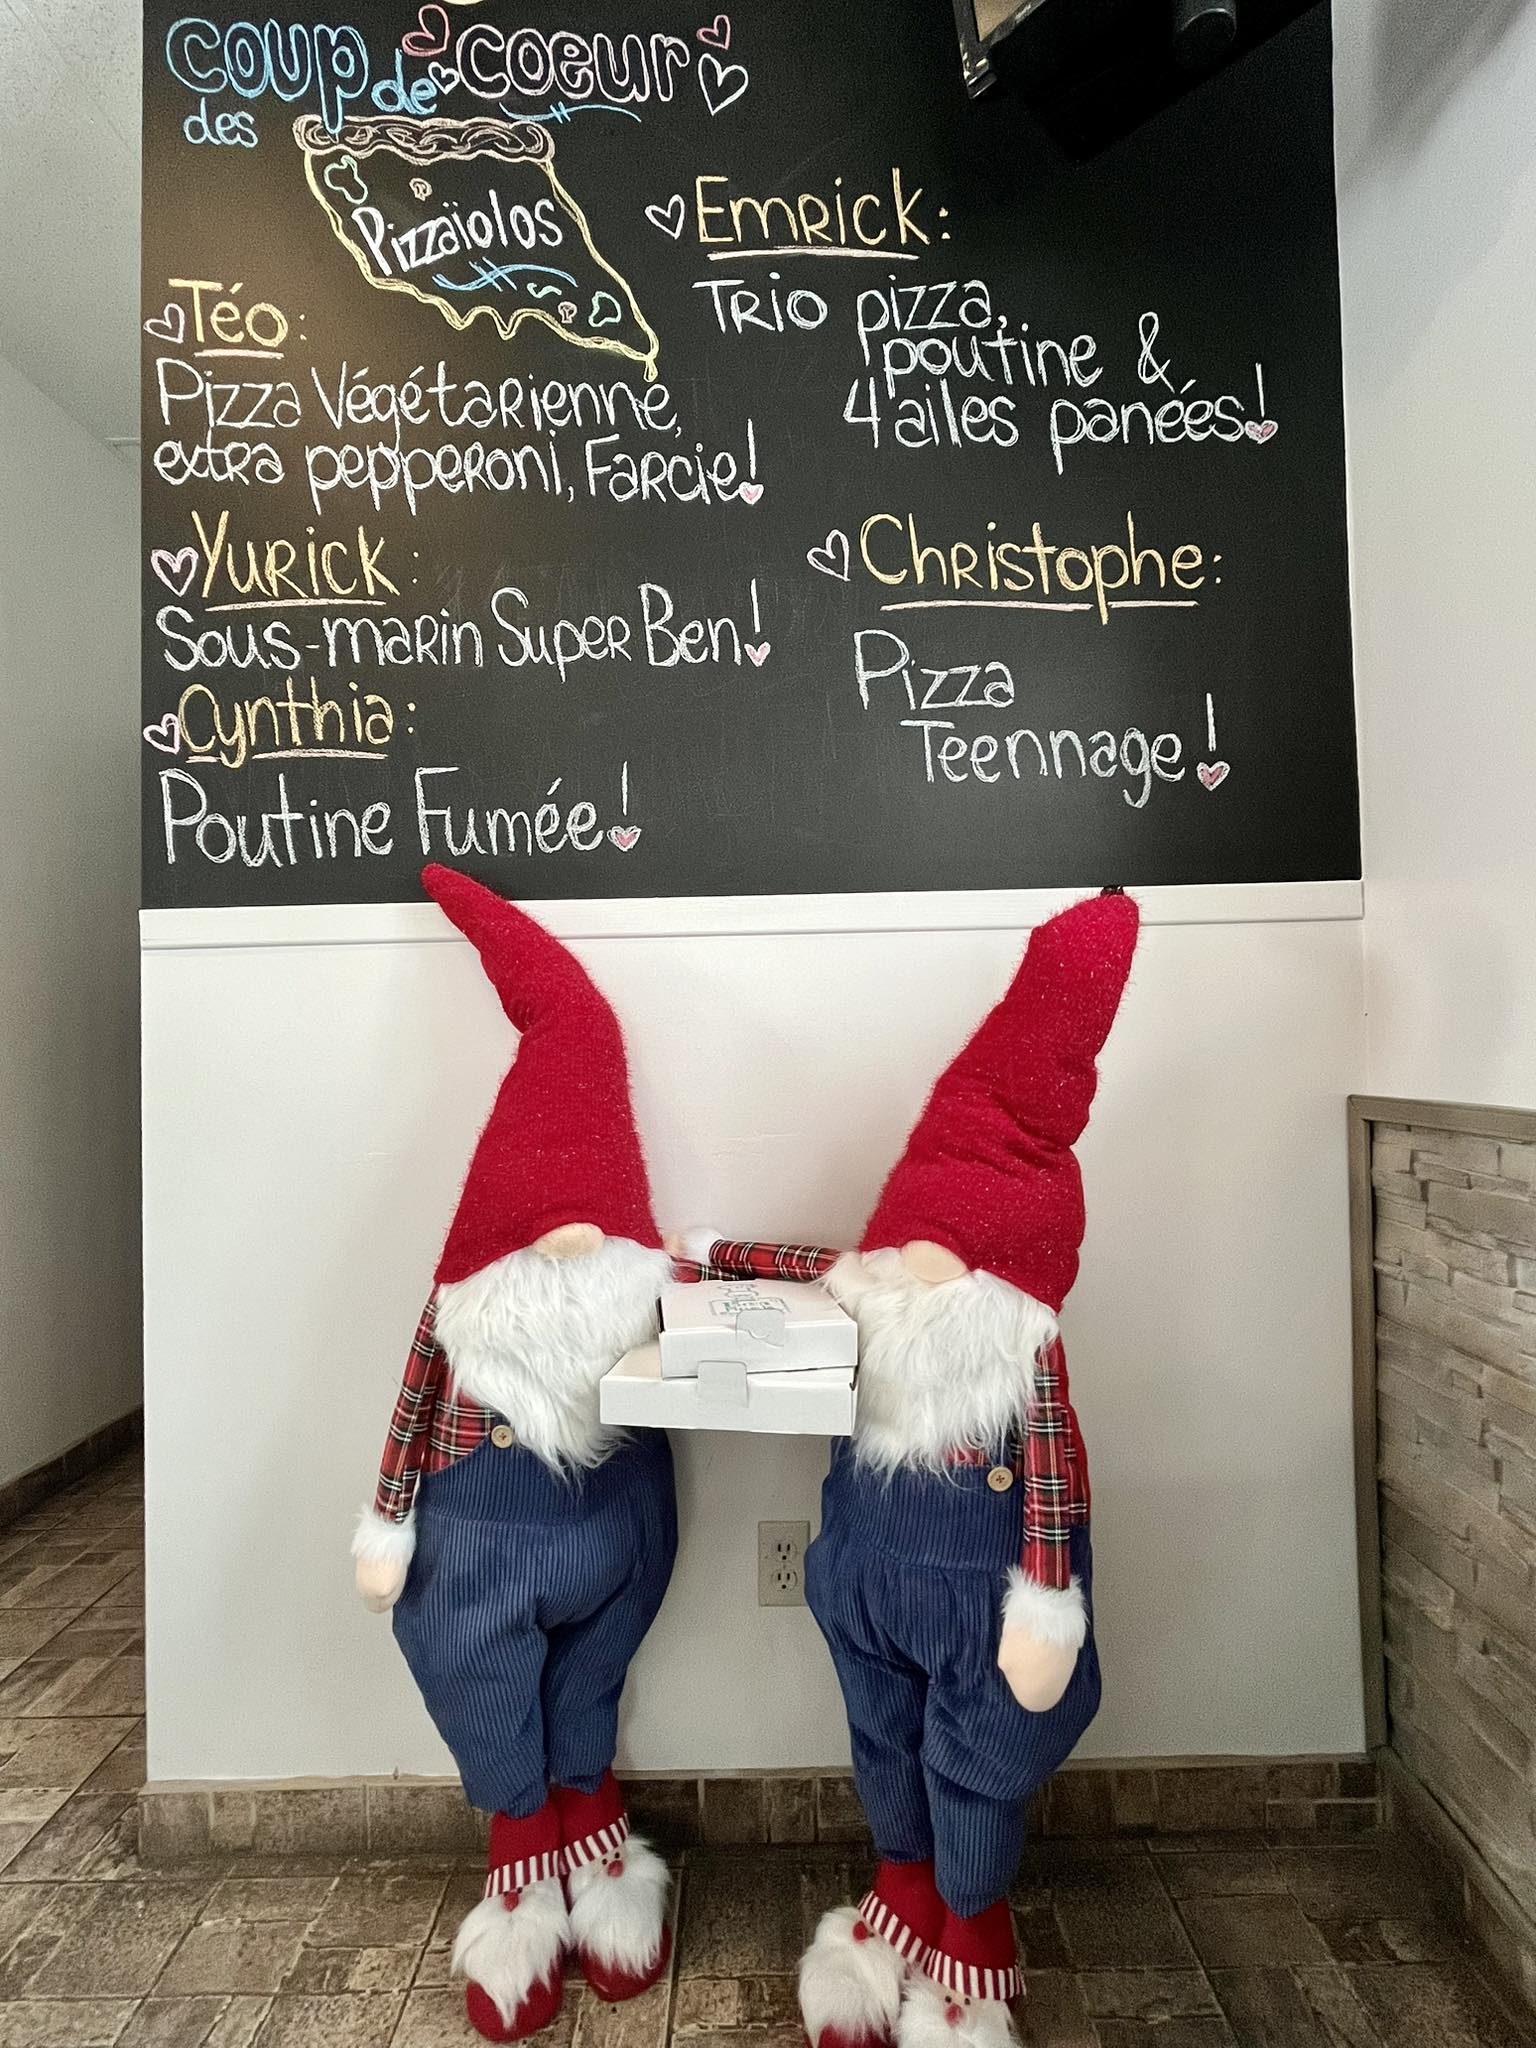 Coup de coeur
des
Pizzaïolos
Téo:
Pizza Végétarienne,
extra pepperoni, Farcie!
Yurick:
Sous-marin Super Ben!
Cynthia:
Poutine Fumée!
Emrick:
Trio pizza,
poutine &
4 ailes panées!
Christophe:
Pizza
Teennage!